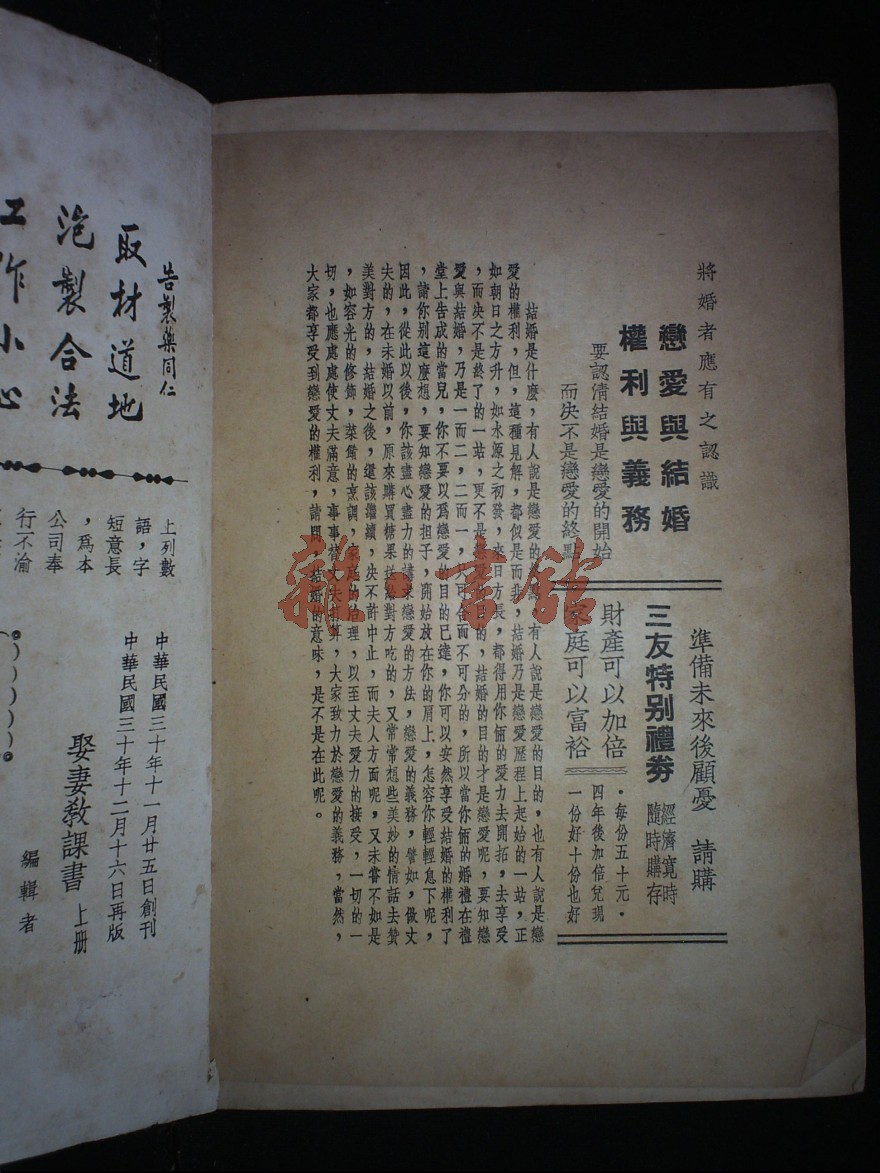 將婚者應有之認識
戀愛與結婚
權利與義務
要認清結婚是戀愛的開始
而決不是戀愛的終點
準備未來後顧憂 請購
三友特别禮券
經濟寬時
隨時購存
財產可以加倍
家庭可以富裕
·每份五十元·
四年後加倍兌現
一份好十份也好
結婚是什麼,有人說是戀愛的
有人說是戀愛的目的,也有人說是戀
愛的權利,但,這種見解,都似是而非,結婚乃是戀愛歷程上起始的一站,正
如朝日之方升,如水源之初發,來日方長,都得用你倆的愛力去開拓,去享受
,而決不是終了的一站,更不是戀愛的目的,結婚的目的才是戀愛呢,要知戀
愛與結婚,乃是一而二,二而一,只可合而不可分的,所以當你倆的婚禮在禮
堂上告成的當兒,你不要以爲戀愛的目的已達,你可以安然享受結婚的權利了
,請你别這麼想,要知戀愛的担子,開始放在你的肩上,怎容你輕輕息下呢,
因此,從此以後,你該盡心盡力的講求戀愛的方法,戀愛的義務,譬如,做丈
夫的,在未婚以前,原來購買糖果送給對方吃的,又常常想些美妙的情話去贊
美對方的,結婚之後,還該繼續,決不許中止,而夫人方面呢,又未嘗不如是
,如容光的修飾,菜餚的烹調,家庭的治理,以至丈夫愛力的接受,一切的一
切,也應處處使丈夫滿意,事事替丈夫打算,大家致力於戀愛的義務,當然,
大家都享受到戀愛的權利,請問,結婚的意味,是不是在此呢。
告製藥同仁
取材道地
泡製合法
工作小心
上列數
語,字
短意長
,爲本
公司奉
行不渝
中華民國三十年十一月廿五日創刊
中華民國三十年十二月十六日再版
娶妻教課書 上册
編輯者
雜書館